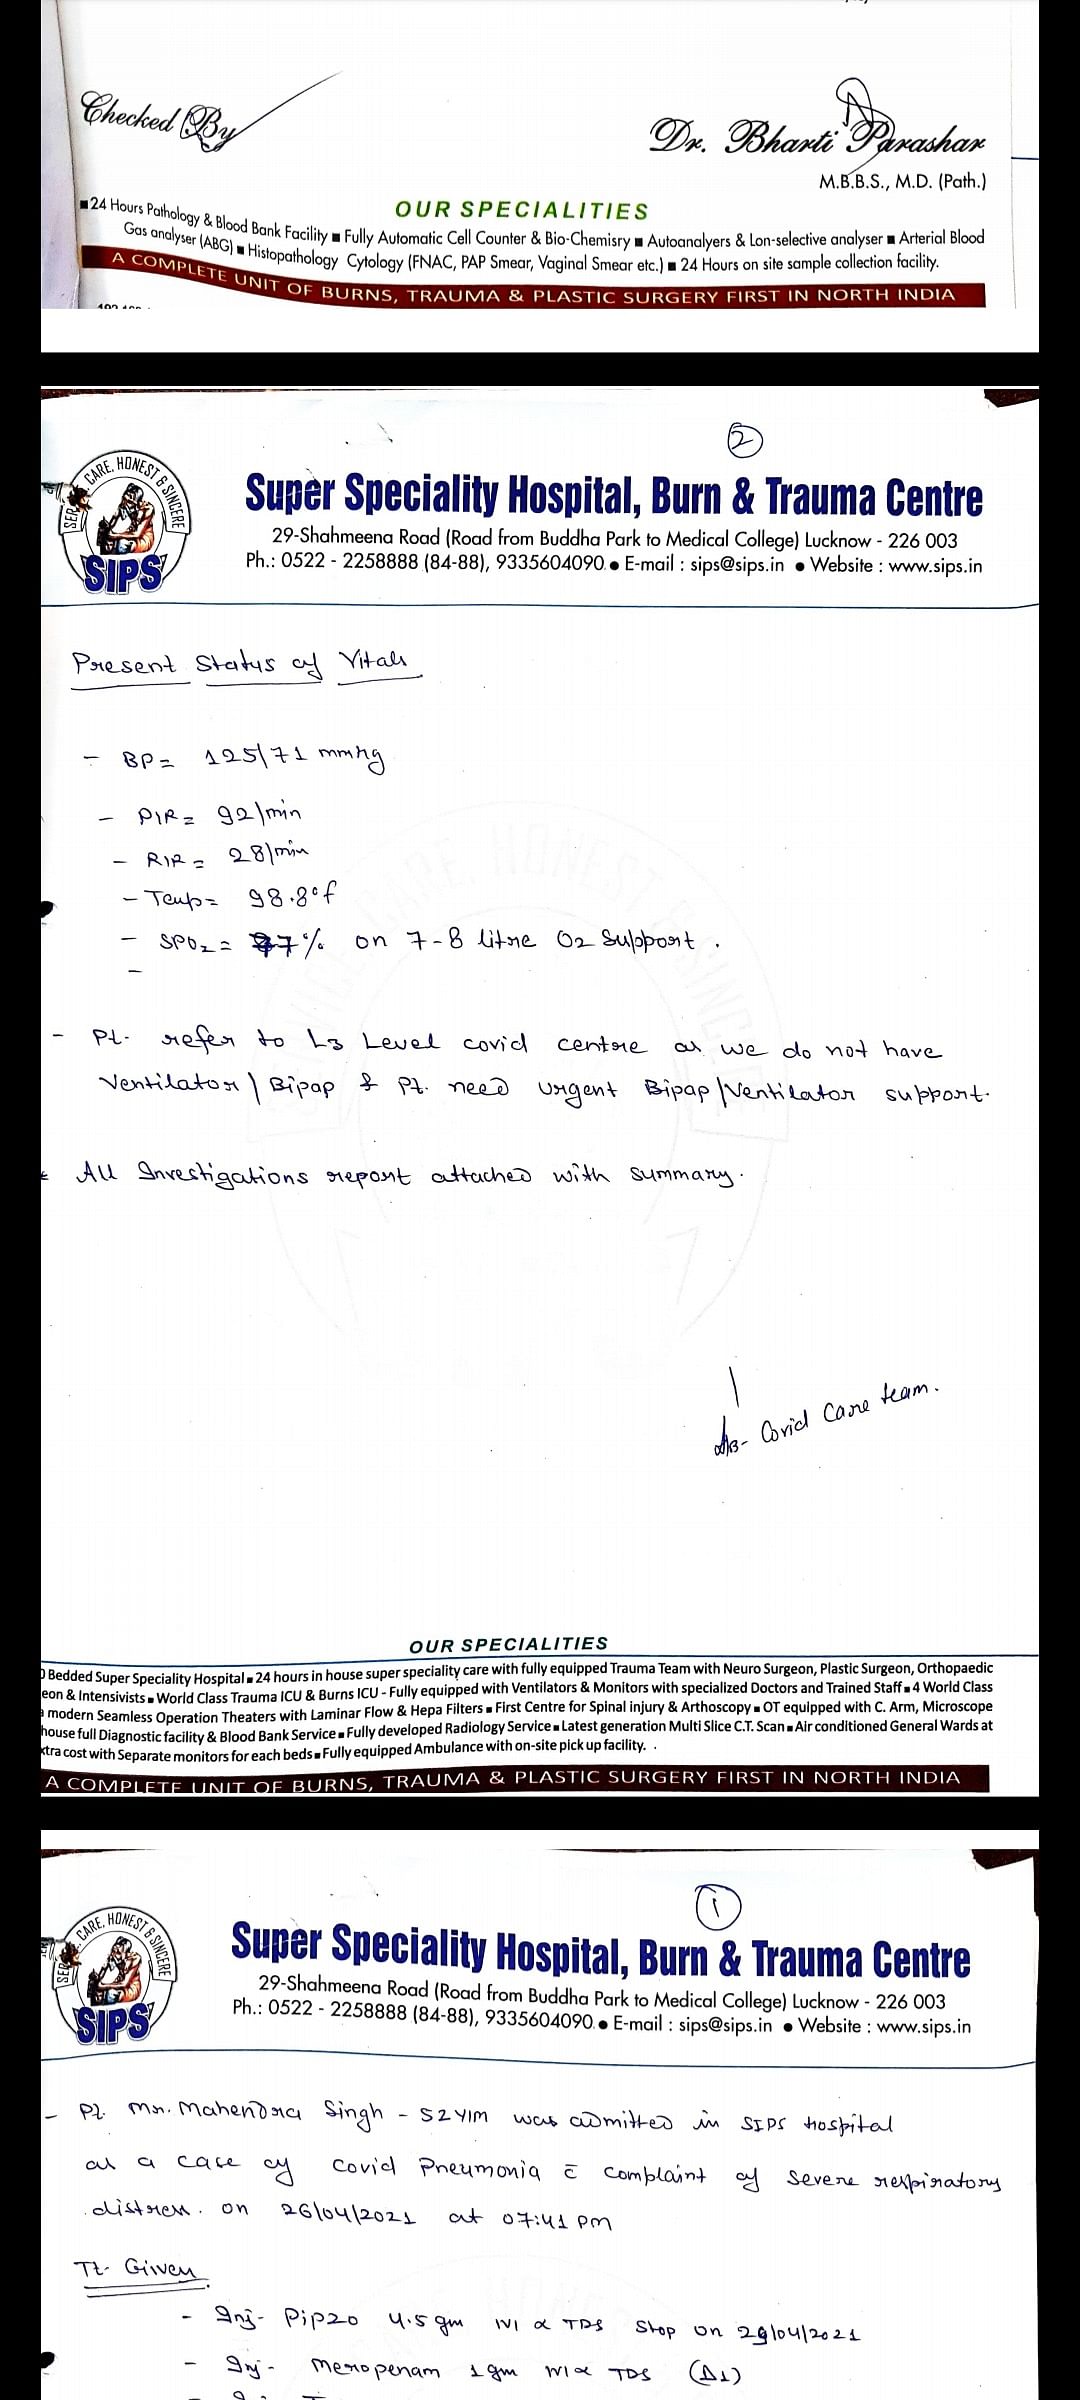 Checked By
Dr. Bharti Parashar
M.B.B.S., M.D. (Path.)
OUR SPECIALITIES
■ 24 Hours Pathology & Blood Bank Facility ■ Fully Automatic Cell Counter & Bio-Chemisry ■ Autoanalyers & Lon-selective analyser ■ Arterial Blood
Gas analyser (ABG) ■ Histopathology Cytology (FNAC, PAP Smear, Vaginal Smear etc.) ■ 24 Hours on site sample collection facility.
A COMPLETE UNIT OF BURNS, TRAUMA & PLASTIC SURGERY FIRST IN NORTH INDIA
2
CARE, HONEST & SINCERE
SIPS
Super Speciality Hospital, Burn & Trauma Centre
29-Shahmeena Road (Road from Buddha Park to Medical College) Lucknow - 226 003
Ph.: 0522 - 2258888 (84-88), 9335604090 ● E-mail : sips@sips.in ● Website : www.sips.in
Present Status of Vitals
- BP = 125/71 mmHg
- P/R = 92/min
- R/R = 28/min
- Temp = 98.8°f
- SPO2 = 7% on 7-8 litre O2 Support.
- Pt. refer to L3 Level covid centre as we do not have
Ventilator/Bipap & Pt. need urgent Bipap/Ventilator support.
All Investigations report attached with summary.
Covid Care team.
OUR SPECIALITIES
Bedded Super Speciality Hospital ■ 24 hours in house super speciality care with fully equipped Trauma Team with Neuro Surgeon, Plastic Surgeon, Orthopaedic
eon & Intensivists ■ World Class Trauma ICU & Burns ICU - Fully equipped with Ventilators & Monitors with specialized Doctors and Trained Staff ■ 4 World Class
modern Seamless Operation Theaters with Laminar Flow & Hepa Filters ■ First Centre for Spinal injury & Arthoscopy ■ OT equipped with C. Arm, Microscope
house full Diagnostic facility & Blood Bank Service ■ Fully developed Radiology Service ■ Latest generation Multi Slice C.T. Scan ■ Air conditioned General Wards at
xtra cost with Separate monitors for each beds ■ Fully equipped Ambulance with on-site pick up facility. .
A COMPLETE UNIT OF BURNS, TRAUMA & PLASTIC SURGERY FIRST IN NORTH INDIA
1
CARE, HONEST & SINCERE
SIPS
Super Speciality Hospital, Burn & Trauma Centre
29-Shahmeena Road (Road from Buddha Park to Medical College) Lucknow - 226 003
Ph.: 0522 - 2258888 (84-88), 9335604090 ● E-mail : sips@sips.in ● Website : www.sips.in
- Pt. Mr. Mahendra Singh - 52Y/M was admitted in SIPS hospital
as a case of covid Pneumonia c̄ complaint of severe respiratory
distress. on 26/04/2021 at 07:41 PM
Tt. Given
- Inj- Pipzo 4.5 gm IV TDS Stop on 29/04/2021
- Inj- Meropenam 1gm IV TDS (D1)